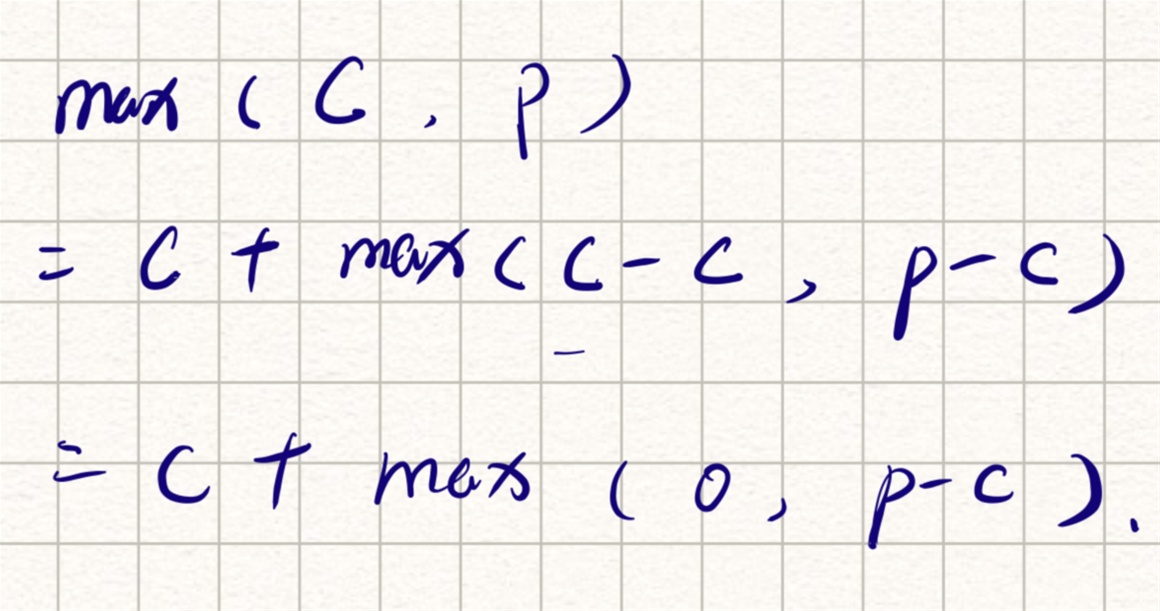 max ( C , p )
= C + max ( C - C , p - c )
= C + max ( 0 , p - c ) .